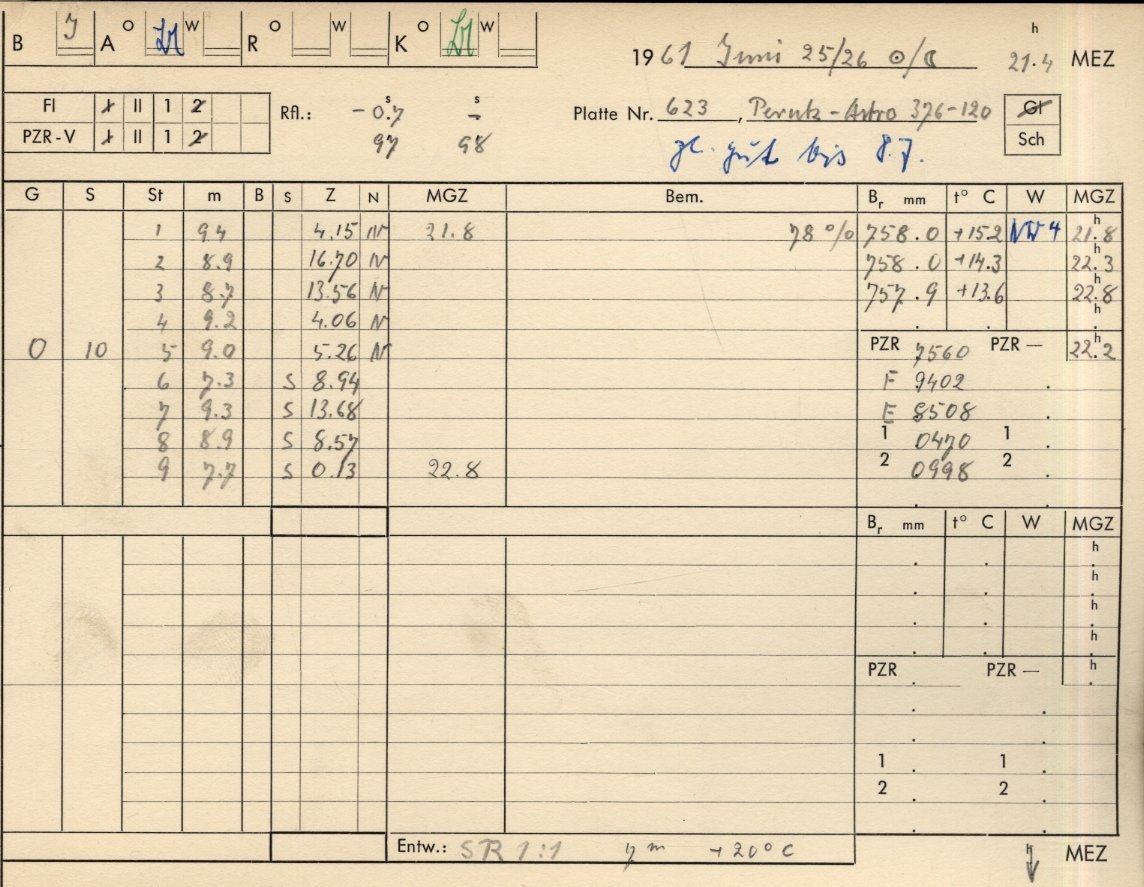 B J A O W R O W K O W
h
1961 Juni 25/26 ☉/☾ 21.4 MEZ
Fl I II 1 2 Rfl.: -0.7 s - s Platte Nr. 623, Perutz-Astro 376-120 Gl
PZR-V I II 1 2 97 98 Sch
gl. gut bis 8.7.
G S St m B S Z N MGZ Bem. Br mm t° C W MGZ
1 9.4 4.15 N 21.8 78 % 758.0 +15.2 NW 4 21.8 h
2 8.9 16.70 N 758.0 +14.3 22.3 h
3 8.7 13.56 N 757.9 +13.6 22.8 h
4 9.2 4.06 N . . h
0 10 5 9.0 5.26 N PZR 7560 PZR — 22.2 h
6 7.3 S 8.94 F 9402 .
7 9.3 S 13.68 E 8508 .
8 8.9 S 8.57 1 0470 1 .
9 7.7 S 0.13 22.8 2 0998 2 .
Br mm t° C W MGZ
h
h
h
h
PZR PZR — h
1 1
2 2
Entw.: SR 1:1 7 m +20° C h MEZ